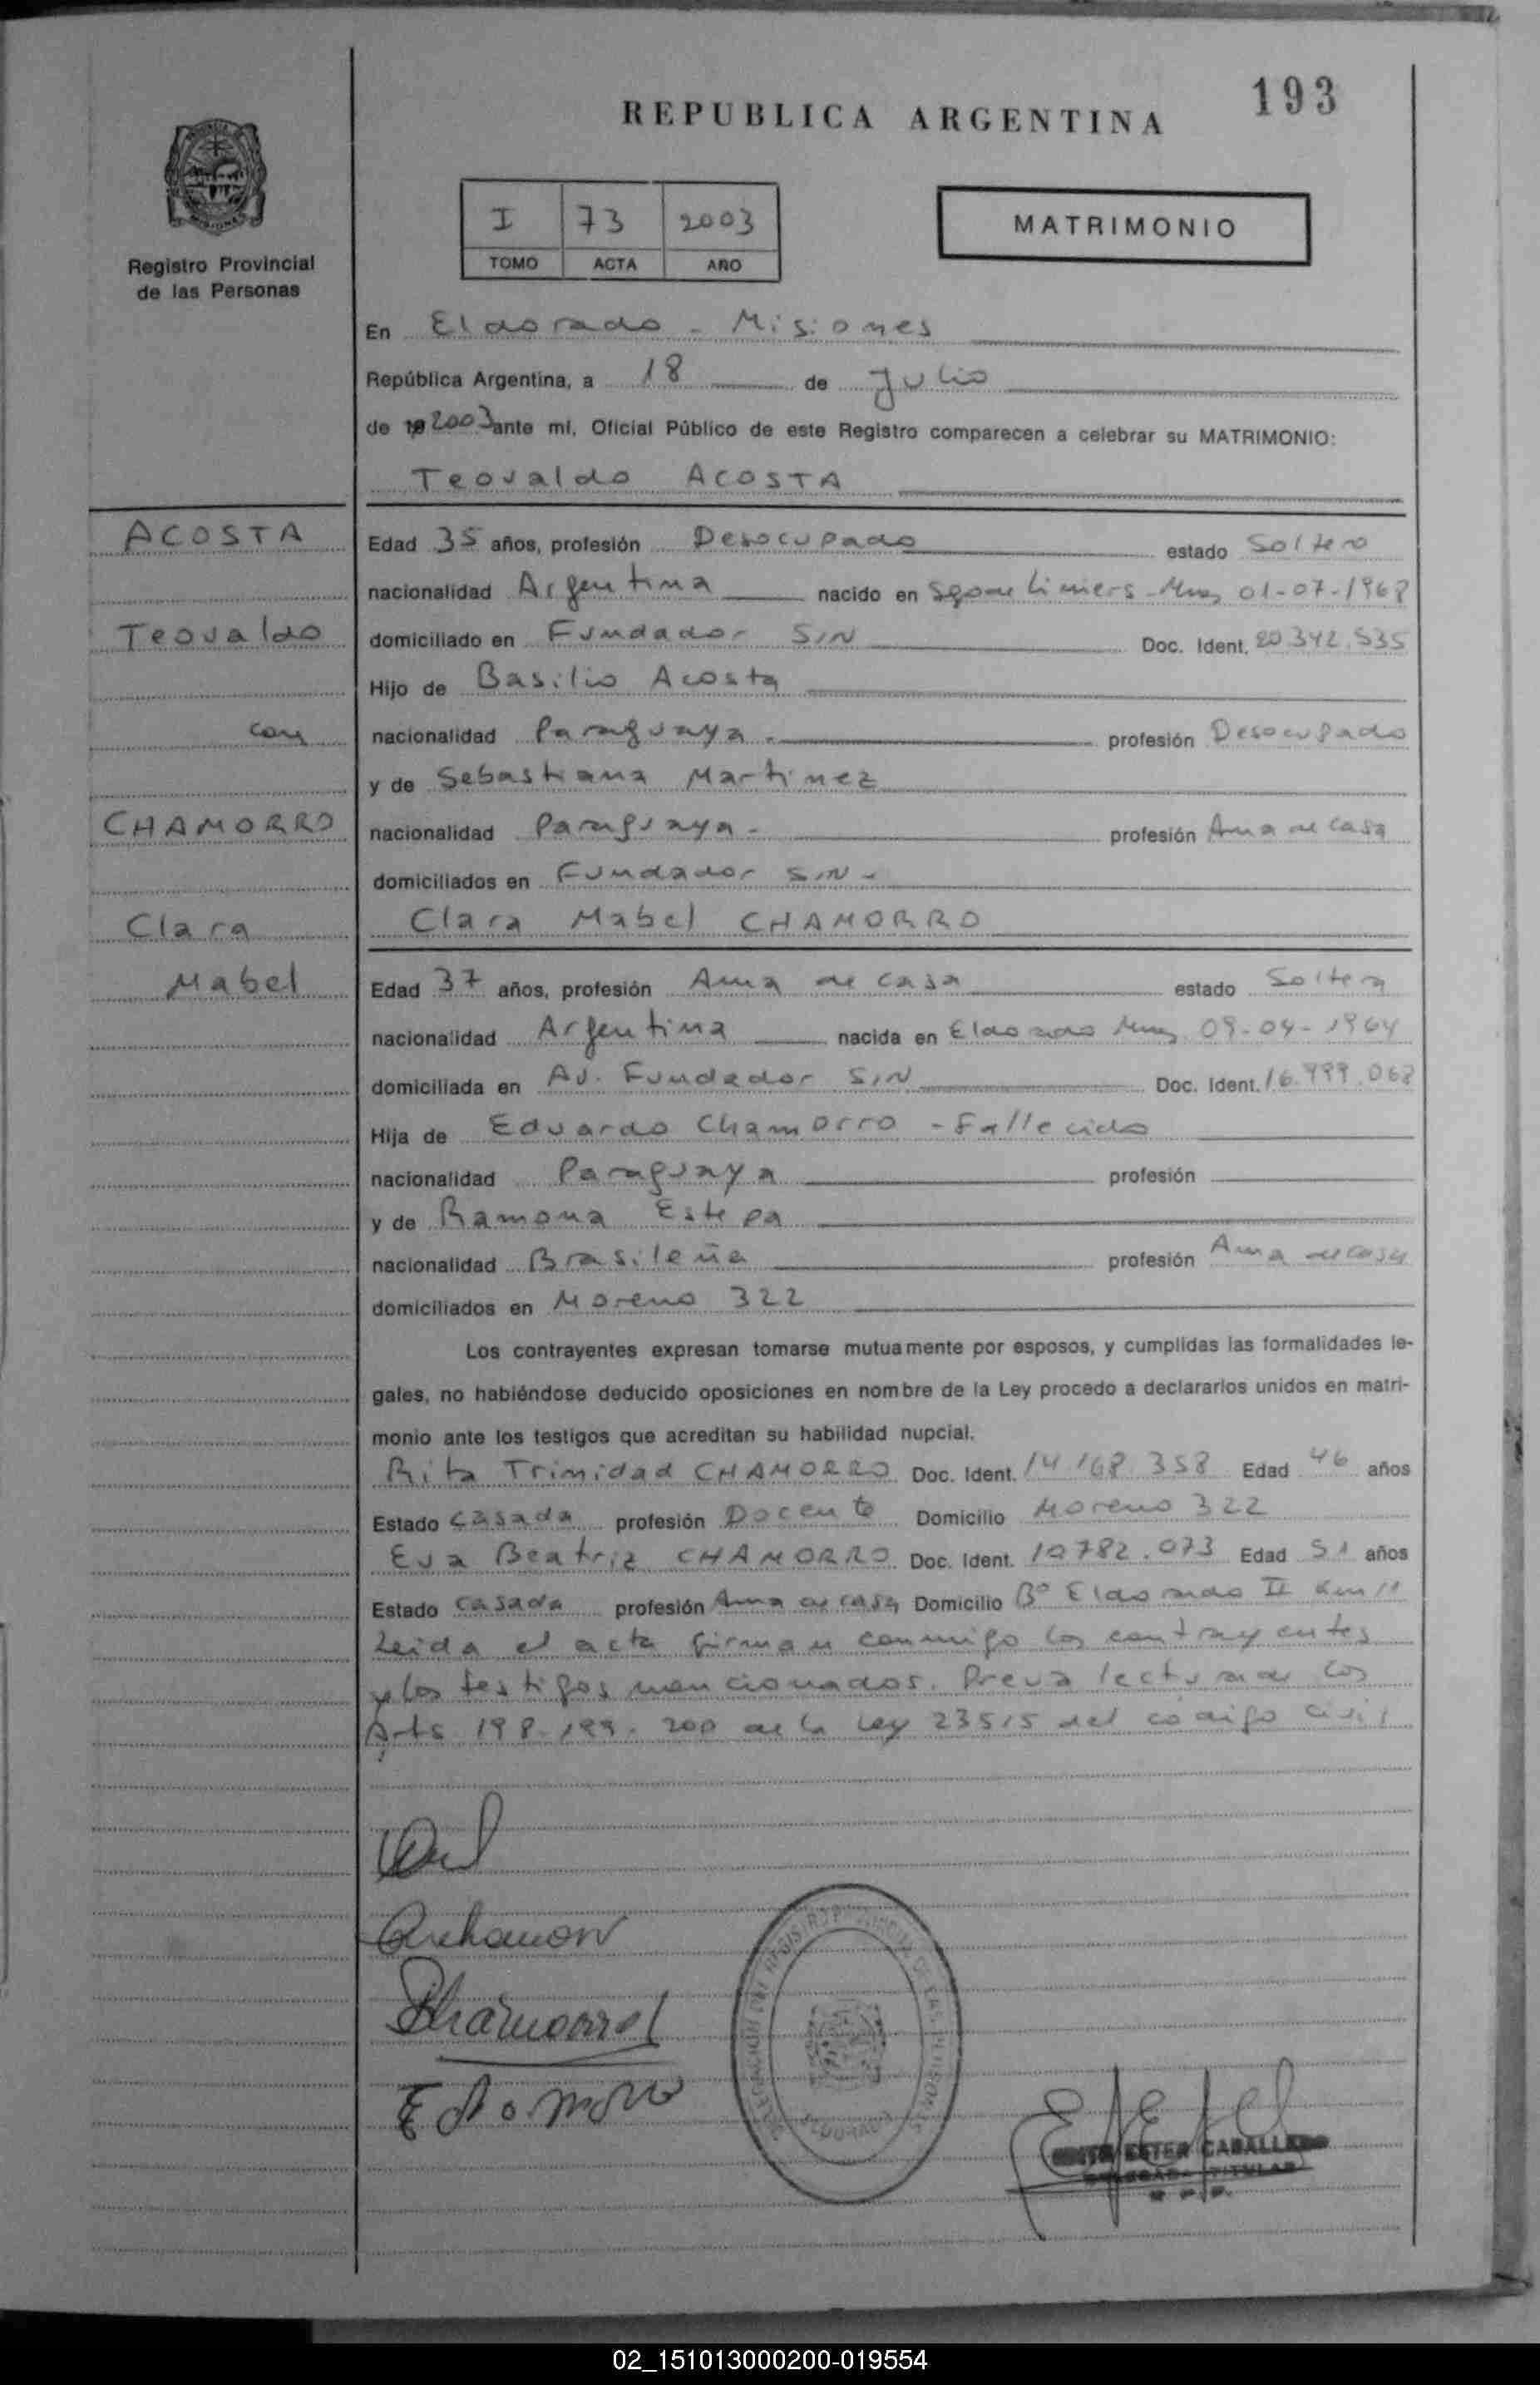 193
REPUBLICA ARGENTINA
I 73 2003
TOMO ACTA AÑO
MATRIMONIO
Registro Provincial
de las Personas
En Eldorado - Misiones
República Argentina, a 18 de Julio
de 19 2003 ante mí, Oficial Público de este Registro comparecen a celebrar su MATRIMONIO:
Teovaldo ACOSTA
ACOSTA
Teovaldo
con
CHAMORRO
Clara
Mabel
Edad 35 años, profesión Desocupado estado Soltero
nacionalidad Argentina nacido en Liniers - Mnes 01-07-1968
domiciliado en Fundador S/N Doc. Ident. 20.342.535
Hijo de Basilio Acosta
nacionalidad Paraguaya - profesión Desocupado
y de Sebastiana Martinez
nacionalidad Paraguaya - profesión Ama de casa
domiciliados en Fundador S/N -
Clara Mabel CHAMORRO
Edad 37 años, profesión Ama de casa estado Soltera
nacionalidad Argentina nacida en Eldorado Mnes 09-04-1964
domiciliada en Av. Fundador S/N Doc. Ident. 16.999.068
Hija de Eduardo Chamorro - Fallecido
nacionalidad Paraguaya profesión
y de Ramona Estepa
nacionalidad Brasileña profesión Ama de casa
domiciliados en Moreno 322
Los contrayentes expresan tomarse mutuamente por esposos, y cumplidas las formalidades le-
gales, no habiéndose deducido oposiciones en nombre de la Ley procedo a declararlos unidos en matri-
monio ante los testigos que acreditan su habilidad nupcial.
Rita Trinidad CHAMORRO Doc. Ident. 14.168.358 Edad 46 años
Estado casada profesión Docente Domicilio Moreno 322
Eva Beatriz CHAMORRO Doc. Ident. 10.782.073 Edad 51 años
Estado casada profesión Ama de casa Domicilio Bº Eldorado II Km 11
Leida el acta firman conmigo los contrayentes
y los testigos mencionados. Previa lectura de los
Arts 198-199-200 de la Ley 23515 del código civil
ESTER CABALLERO
DELEGADA TITULAR
02_151013000200-019554